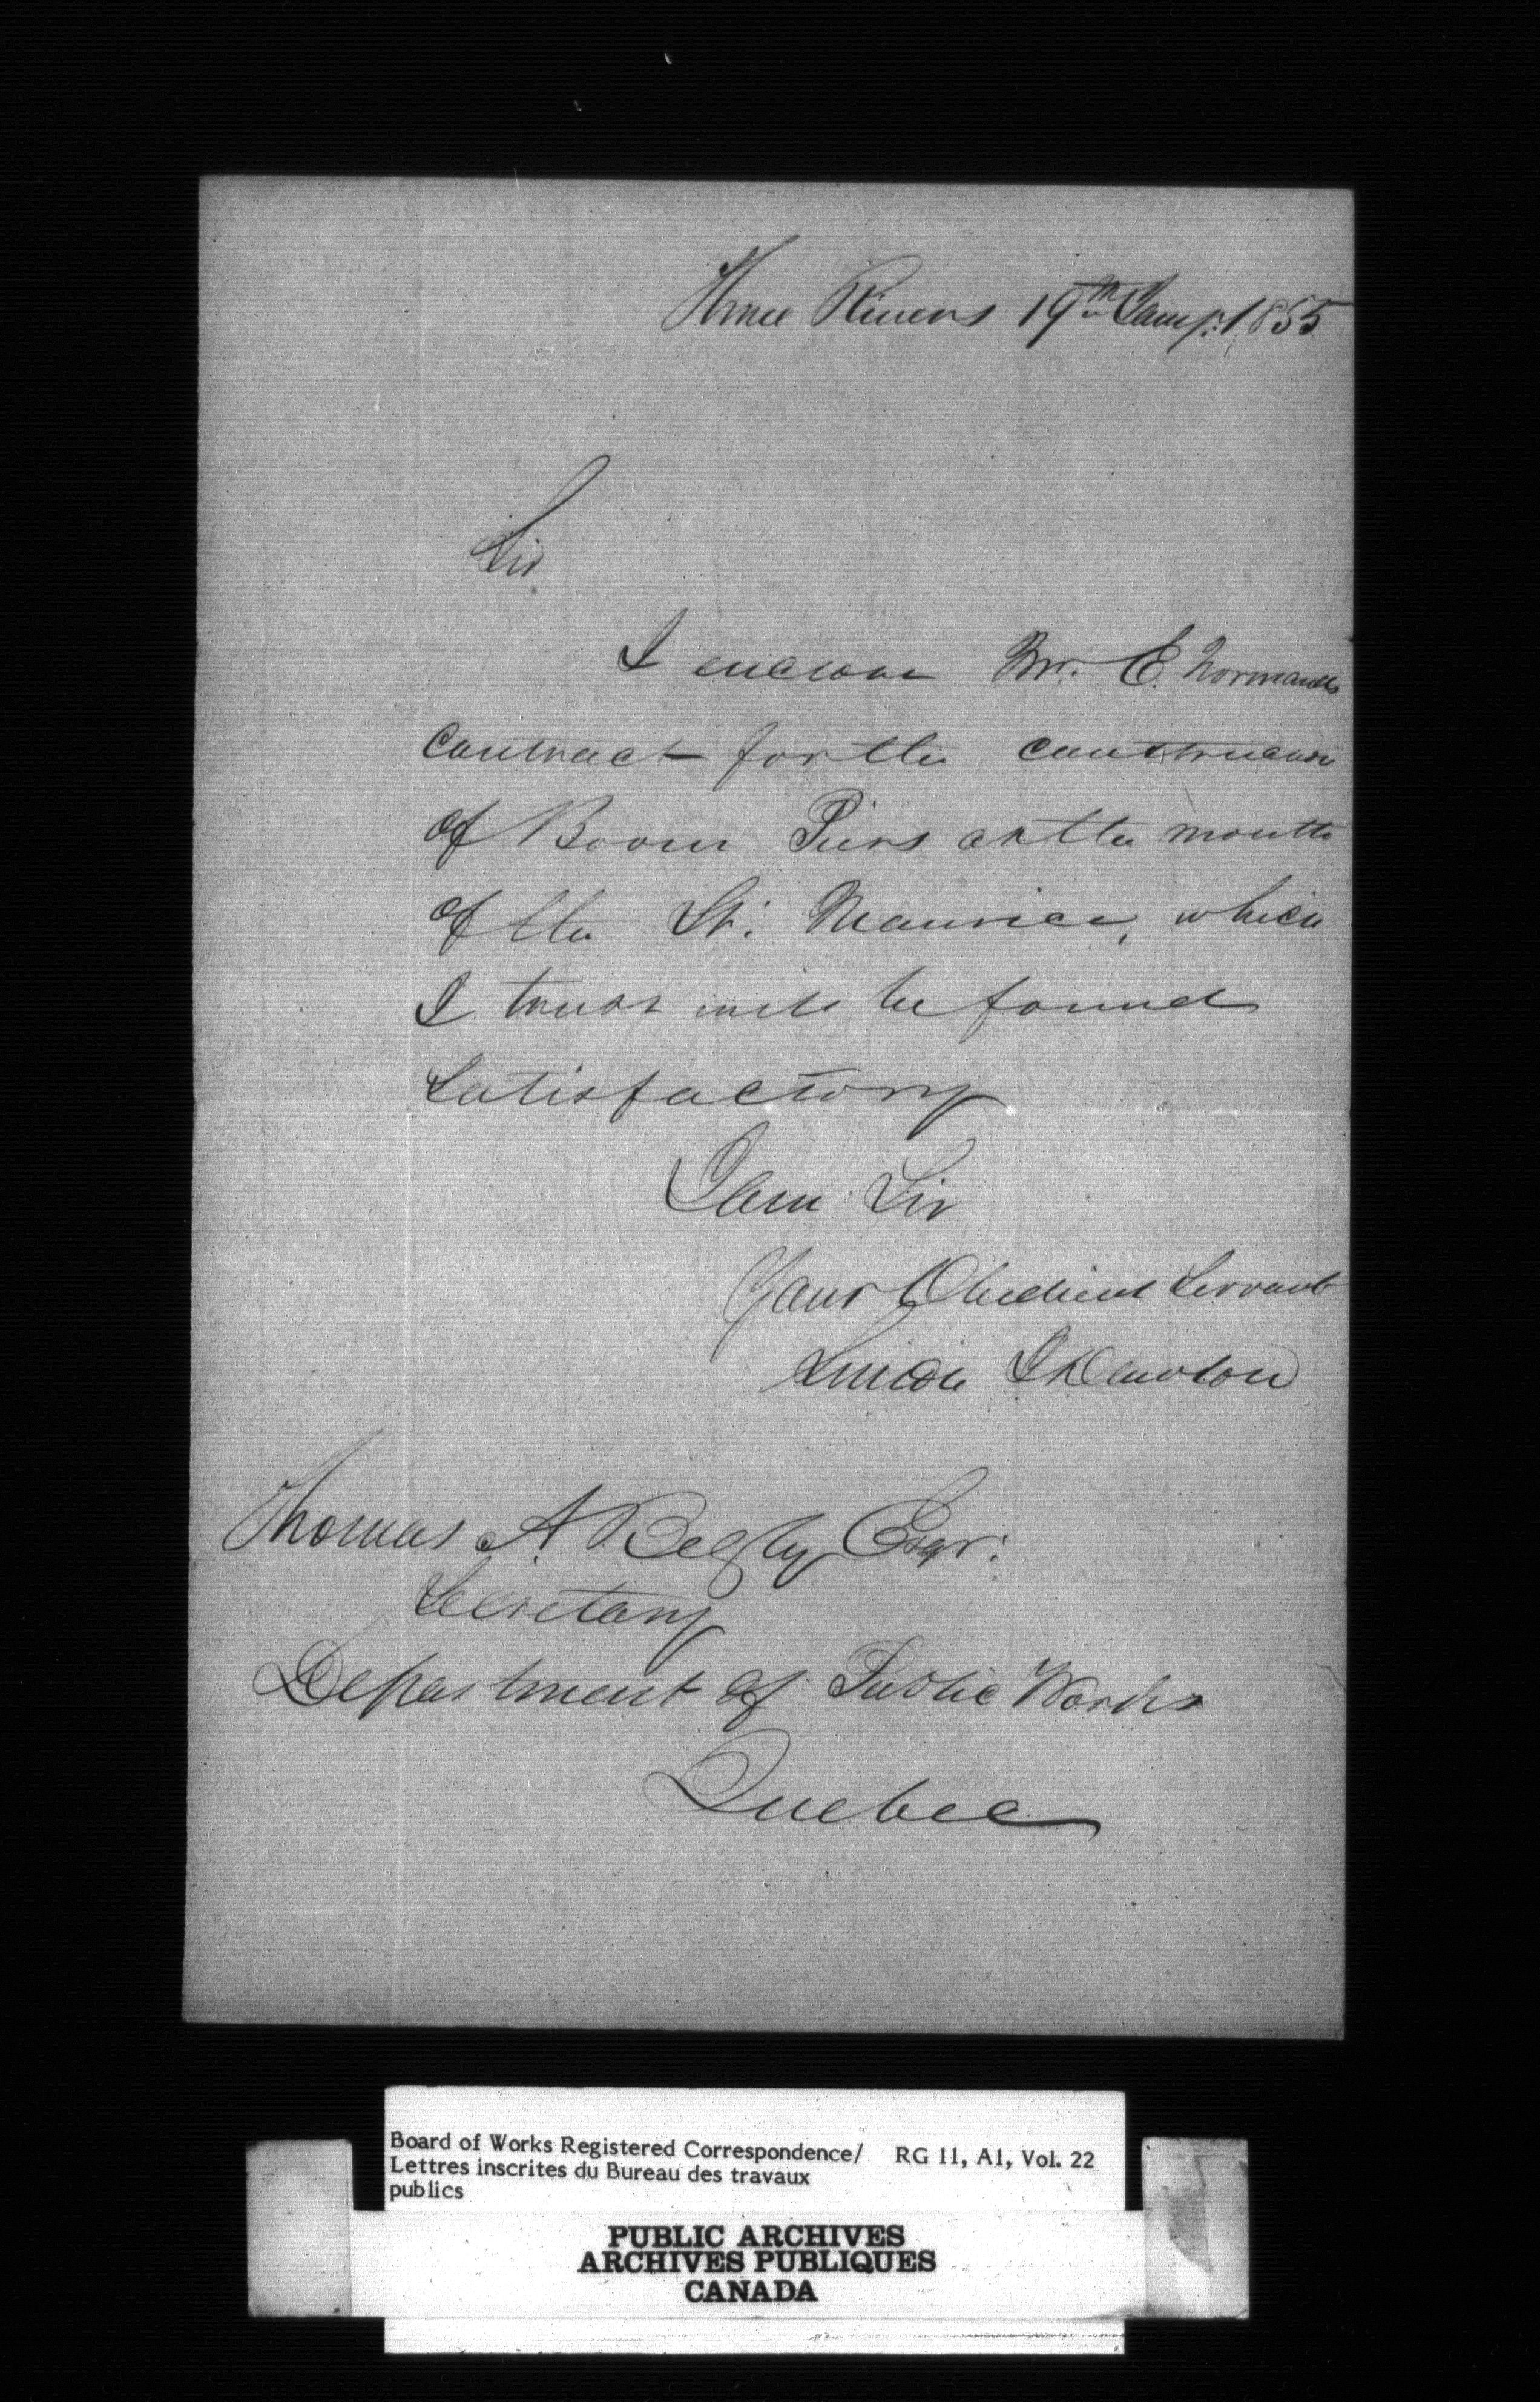 Three Rivers 19th Jany. 1855
Sir
I enclose Mr. E. Normands
contract for the construction
of Boom Piers at the mouth
of the St. Maurice, which
I trust will be found
satisfactory
I am Sir
Your Obedient Servant
Simon J Dawson
Thomas A. Begly Esqr.
Secretary
Department of Public Works
Quebec
Board of Works Registered Correspondence/ RG 11, A1, Vol. 22
Lettres inscrites du Bureau des travaux
publics
PUBLIC ARCHIVES
ARCHIVES PUBLIQUES
CANADA